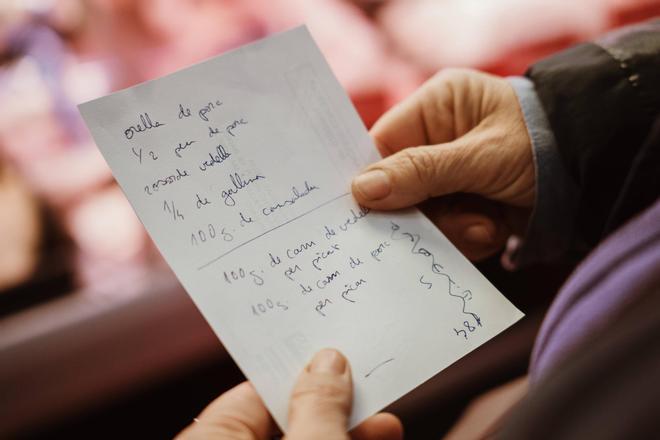 orella de porc
1/2 peu de porc
vedella
1/4 de gallina
100 g. de cansalada
100 g. de carn de vedella
per picar
100 g. de carn de porc
per picar